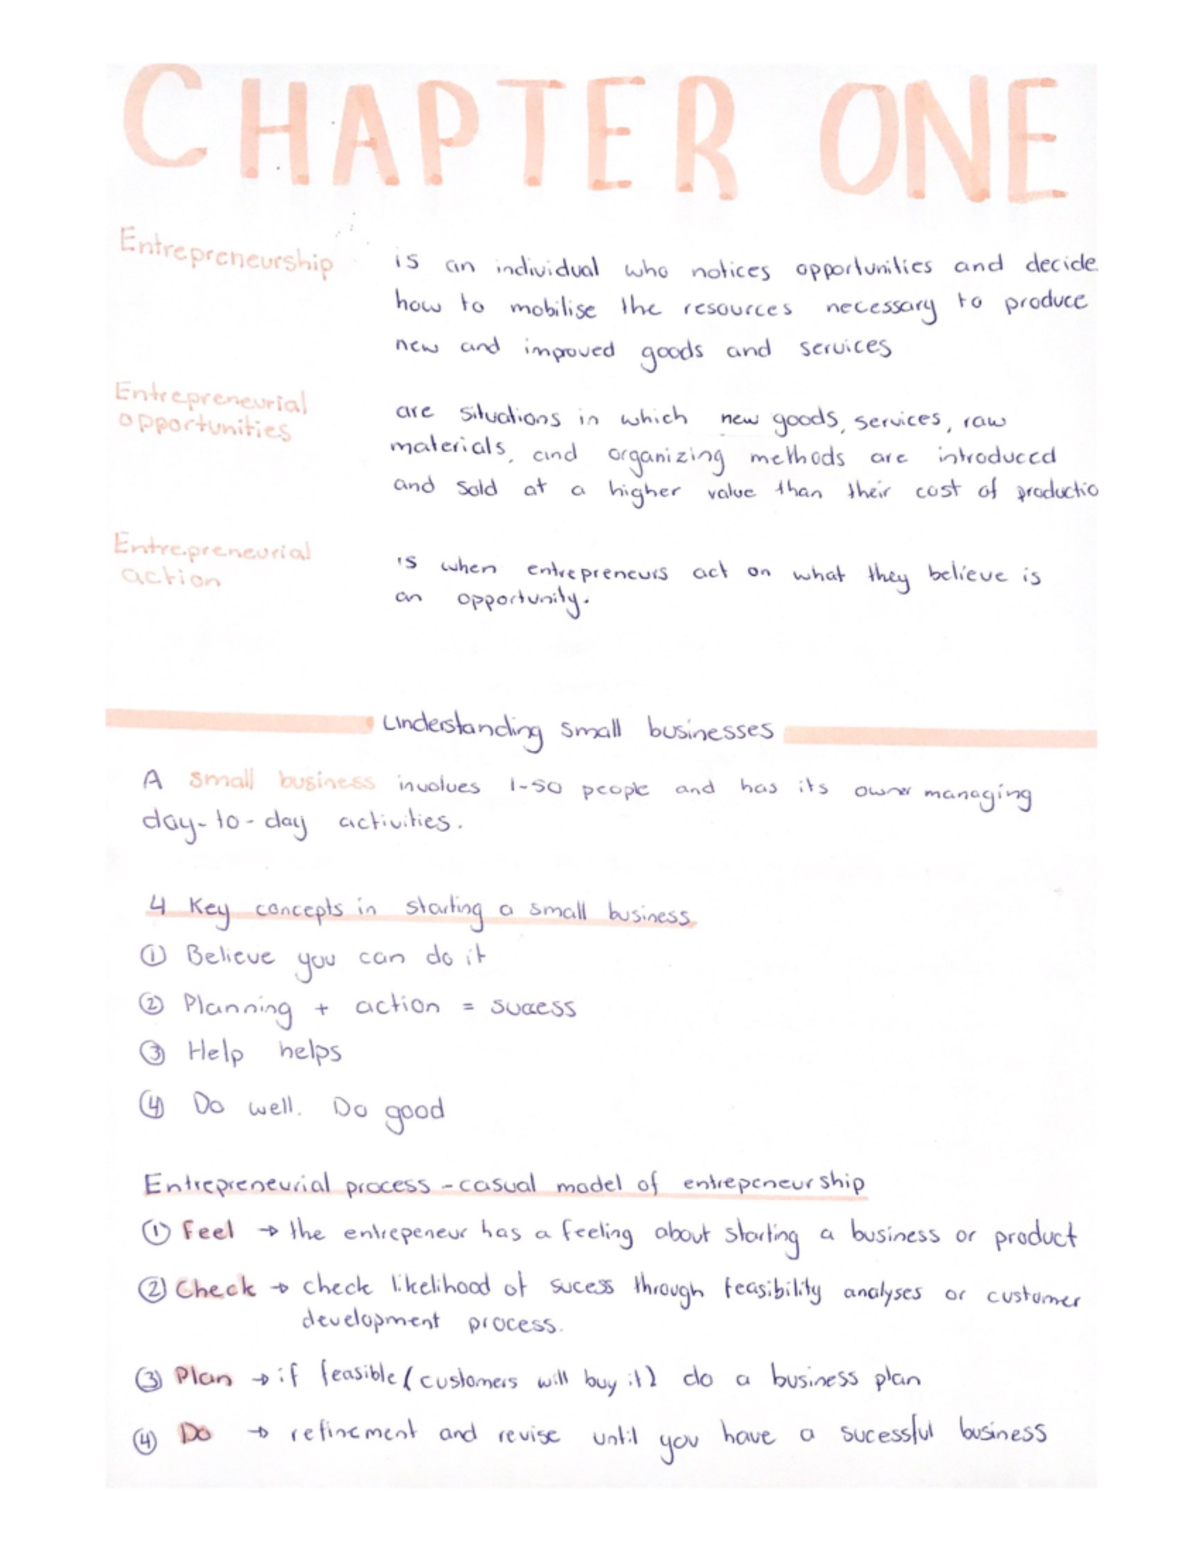 CHAPTER ONE
Entrepreneurship
is an individual who notices opportunities and decide
how to mobilise the resources necessary to produce
new and improved goods and services
Entrepreneurial
opportunities
are situations in which new goods, services, raw
materials, and organizing methods are introduced
and sold at a higher value than their cost of productio
Entrepreneurial
action
is when entrepreneurs act on what they believe is
an opportunity.
Understanding small businesses
A small business involves 1-50 people and has its owner managing
day-to-day activities.
4 Key concepts in starting a small business
① Believe you can do it
② Planning + action = success
③ Help helps
④ Do well. Do good
Entrepreneurial process - casual model of entrepeneurship
① Feel → the entrepeneur has a feeling about starting a business or product
② Check → check likelihood of sucess through feasibility analyses or customer
development process.
③ Plan → if feasible (customers will buy it) do a business plan
④ Do → refinement and revise until you have a sucessful business